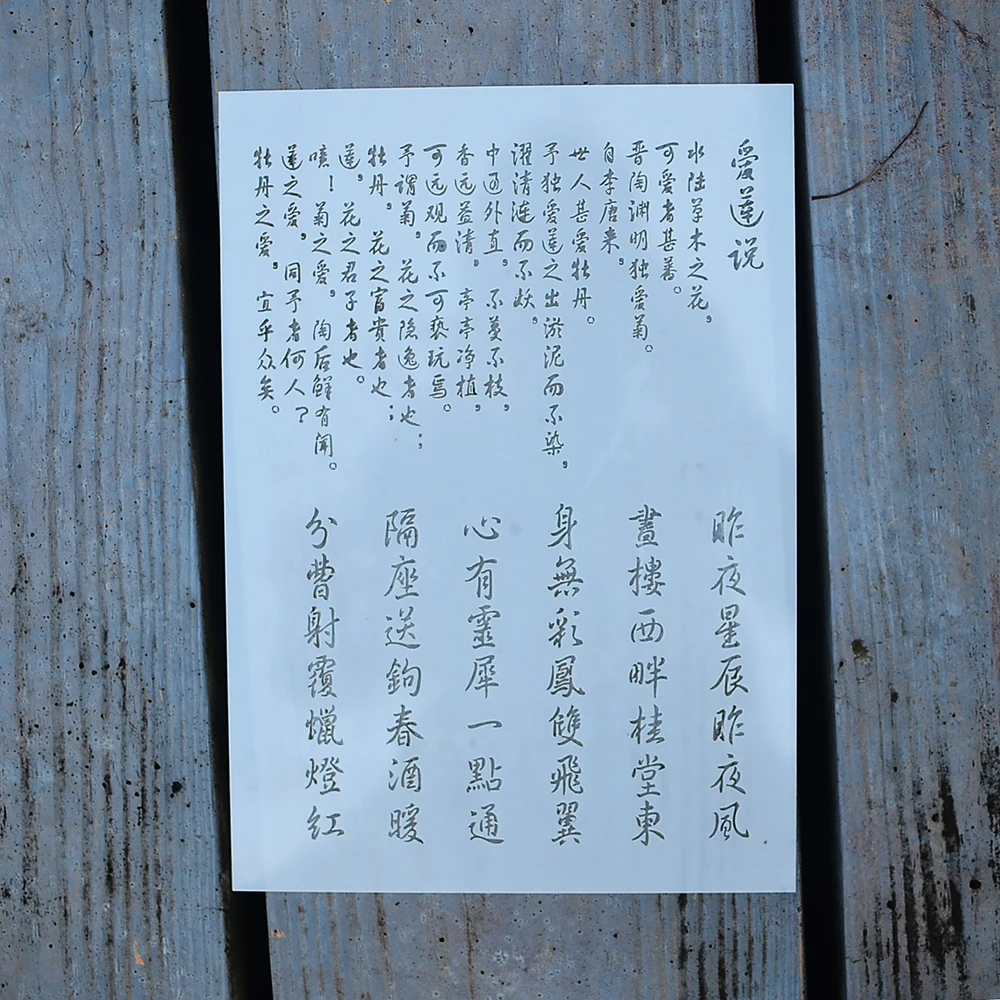 愛蓮说
水陆草木之花，
可爱者甚蕃。
晋陶渊明独爱菊。
自李唐来，
世人甚爱牡丹。
予独爱莲之出淤泥而不染，
濯清涟而不妖，
中通外直，不蔓不枝，
香远益清，亭亭净植，
可远观而不可亵玩焉。
予谓菊，花之隐逸者也；
牡丹，花之富贵者也；
莲，花之君子者也。
噫！菊之爱，陶后鲜有闻。
莲之爱，同予者何人？
牡丹之爱，宜乎众矣。
昨夜星辰昨夜風
畫樓西畔桂堂東
身無彩鳳雙飛翼
心有靈犀一點通
隔座送鉤春酒暖
分曹射覆蠟燈紅